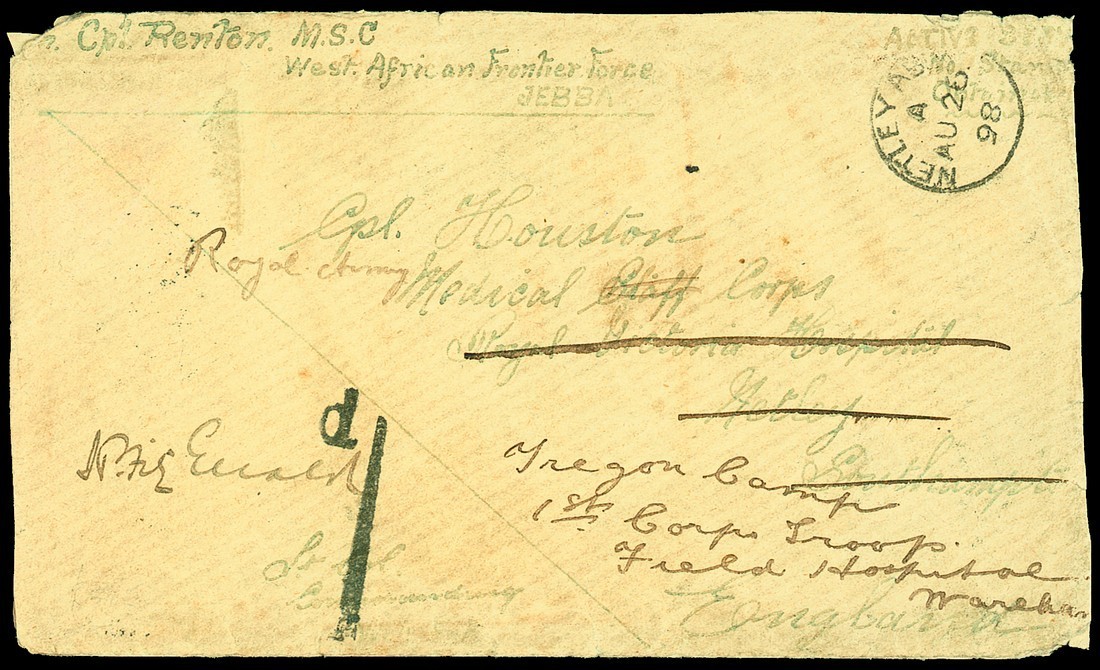 Cpl. Renton. M.S.C
West. African Frontier Force
JEBBA
Active
No Stam
NETLEY A
A
AU 26
98
Cpl. Houston
Royal Army Medical Staff Corps
Royal Victoria Hospital
Netley
Southampt
England
d
1
Lt Col.
Commanding
Tregon Camp
1st Corps Troop.
Field Hospital
Wareham